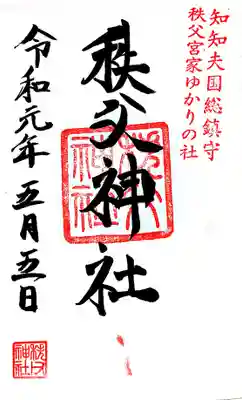 知知夫国総鎮守
秩父宮家ゆかりの社
秩父神社
令和元年五月五日
秩父神社
秩父神社